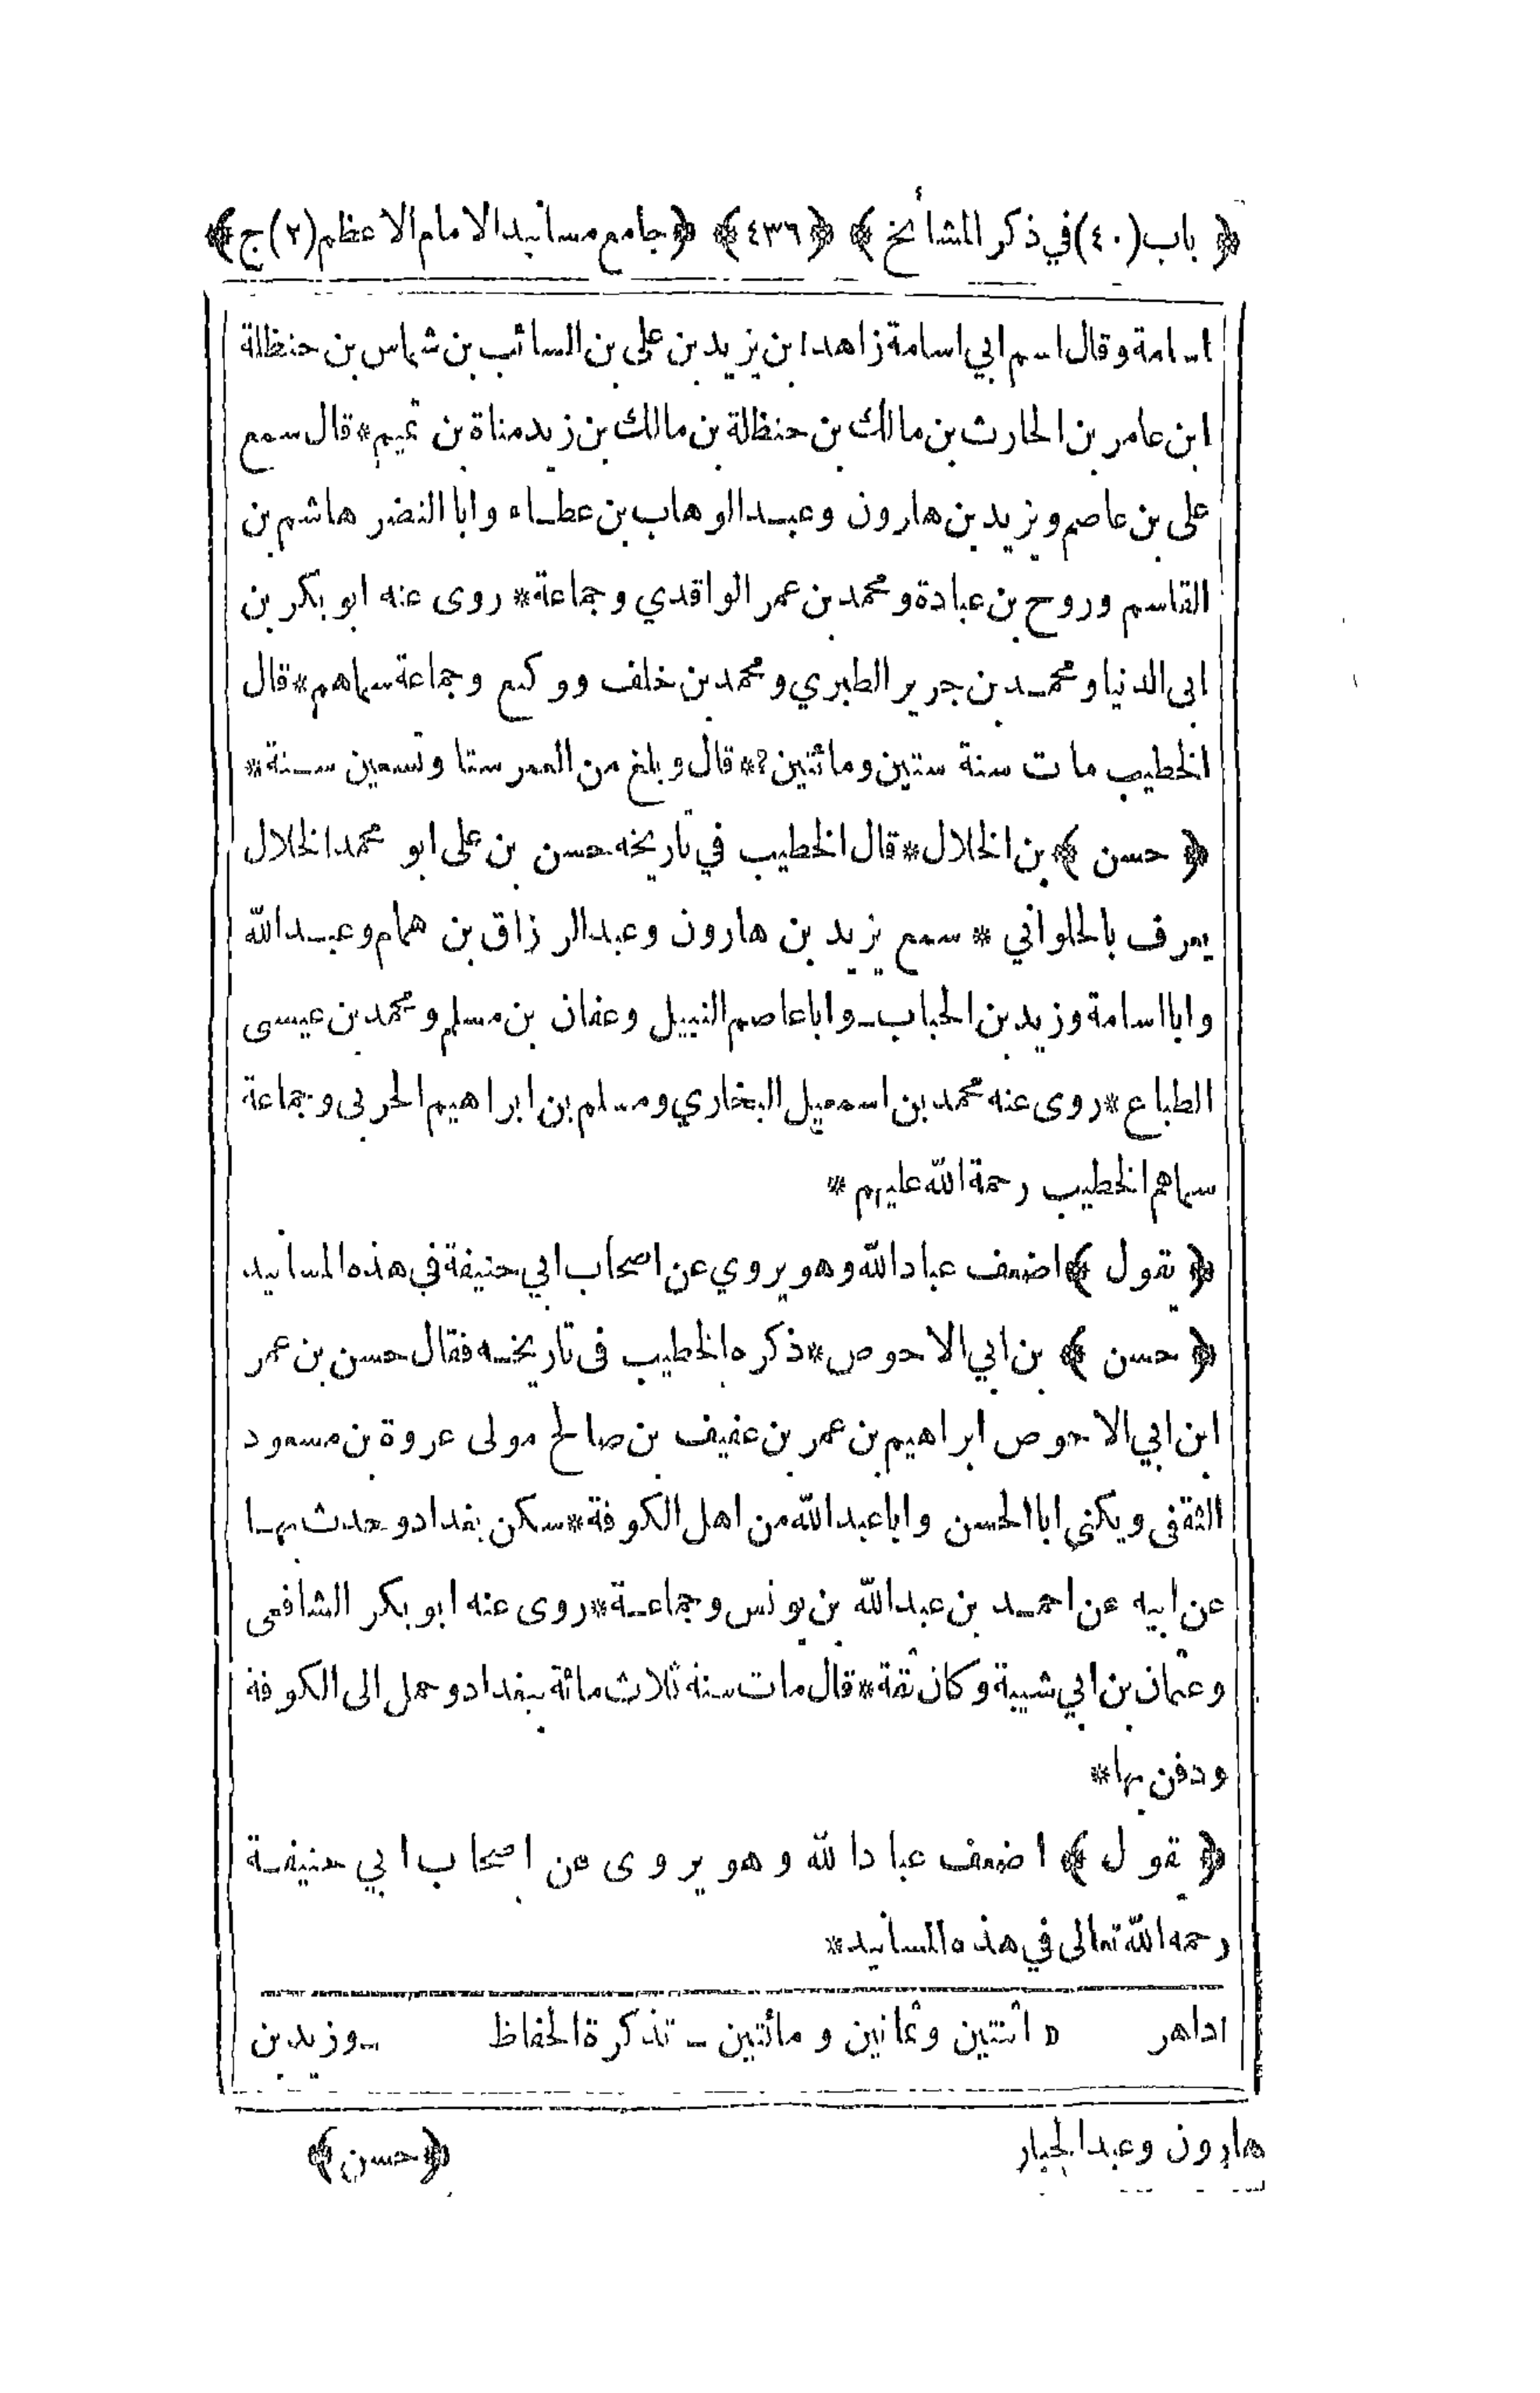 ﴿ باب (٤٠) في ذكر المشائخ ﴾ ﴿ ٤٣٦ ﴾ ﴿ جامع مسانيد الامام الاعظم (٢) ج ﴾
اسامة وقال اسم ابي اسامة زاهد ١ بن يزيد بن على بن السائب بن شماس بن حنظلة
ابن عامر بن الحارث بن مالك بن حنظلة بن مالك بن زيد مناة بن تميم * قال سمع
على بن عاصم ويزيد بن هارون وعبد الوهاب بن عطاء وابا النضر هاشم بن
القاسم وروح بن عبادة ومحمد بن عمر الواقدي وجماعة * روى عنه ابو بكر بن
ابى الدنيا ومحمد بن جرير الطبري ومحمد بن خلف ووكيع وجماعة سماهم * قال
الخطيب مات سنة ستين ومائتين * قال وبلغ من العمر ستا وتسعين سنة *
﴿ حسن ﴾ بن الخلال * قال الخطيب في تاريخه حسن بن على ابو محمد الخلال
يعرف بالحلواني * سمع يزيد بن هارون وعبد الرزاق بن همام وعبد الله
وابا اسامة وزيد بن الحباب ـ وابا عاصم النبيل وعفان بن مسلم ومحمد بن عيسى
الطباع * روى عنه محمد بن اسمعيل البخاري ومسلم بن ابراهيم الحربى وجماعة
سماهم الخطيب رحمة الله عليهم *
﴿ يقول ﴾ اضعف عباد الله وهو يروي عن اصحاب ابي حنيفة في هذه المسانيد
﴿ حسن ﴾ بن ابي الاحوص * ذكره الخطيب فى تاريخه فقال حسن بن عمر
ابن ابي الاحوص ابراهيم بن عمر بن عفيف بن صالح مولى عروة بن مسعود
الثقفى ويكنى ابا الحسن وابا عبد الله من اهل الكوفة * سكن بغداد وحدث بها
عن ابيه عن احمد بن عبد الله بن يونس وجماعة * روى عنه ابو بكر الشافعى
وعثمان بن ابي شيبة وكان ثقة * قال مات سنة ثلاث مائة ببغداد وحمل الى الكوفة
ودفن بها *
﴿ يقول ﴾ اضعف عباد الله وهو يروى عن اصحاب ابي حنيفة
رحمه الله تعالى في هذه المسانيد *
١ داهر اثنتين وثمانين ومائتين ـ تذكرة الحفاظ ـ وزيد بن
هارون وعبد الجبار ﴿ حسن ﴾